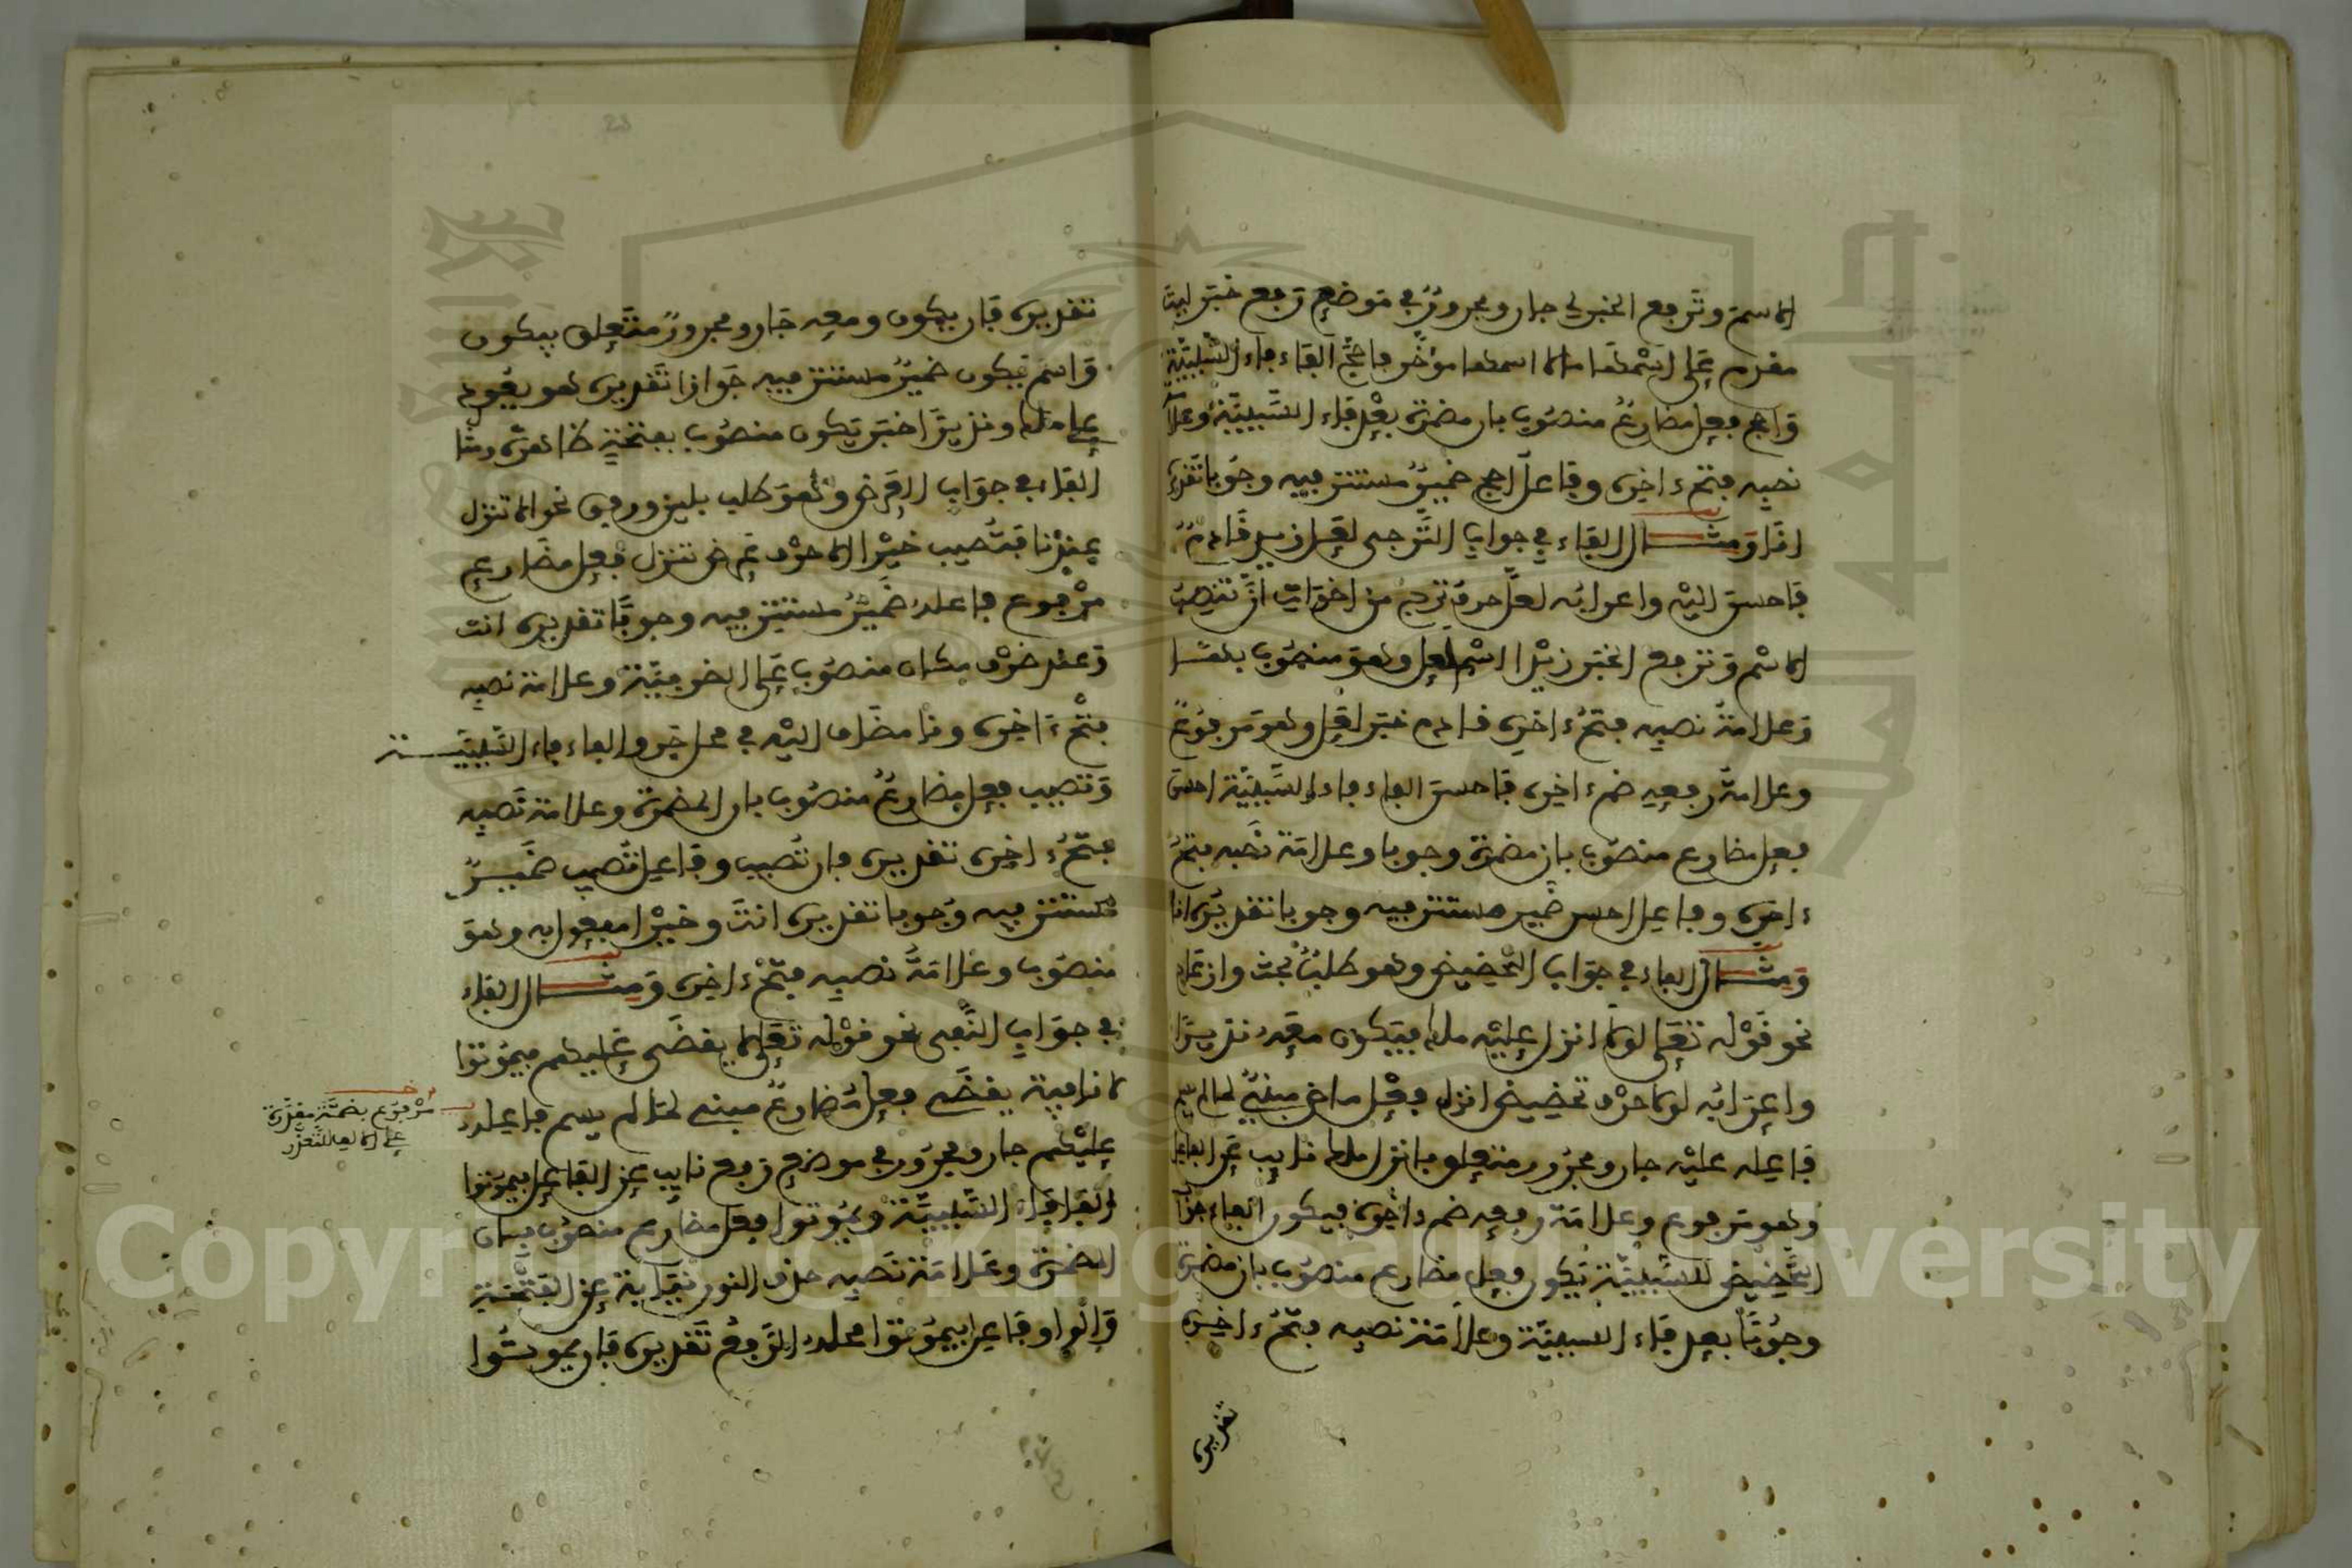 الاسم وترفع الخبر لي جار ومجرور في موضع رفع خبر ليت
مقدم على اسمها مالا اسمها مؤخر فاحج الفاء فاء السببية
واحج فعل مضارع منصوب بان مضمرة بعد فاء السببية وعلا
نصبه فتحة ءاخره وفاعل احج ضمير مستتر فيه وجوبا تقديره
انا ومثال الفاء في جواب الترجى لعل زيدا قادم
فاحسن اليه واعرابه لعل حرف ترج من اخوات ان تنصب
الاسم وترفع الخبر زيدا اسم لعل وهو منصوب بلعل
وعلامة نصبه فتحة ءاخره قادم خبر لعل وهو مرفوع
وعلامة رفعه ضمة ءاخره فاحسن الفاء فاء السببية احسن
فعل مضارع منصوب بان مضمرة وجوبا وعلامة نصبه فتحة
ءاخره وفاعل احسن ضمير مستتر فيه وجوبا تقديره انا
ومثال الفاء في جواب التحضيض وهو طلب بحث وازعاج
نحو قوله تعلى لولا انزل عليه ملك فيكون معه نذيرا
واعرابه لولا حرف تحضيض انزل فعل ماض مبني لما لم يسم
فاعله عليه جار ومجرور متعلق بانزل ملك نايب عن الفاعل
وهو مرفوع وعلامة رفعه ضمة ءاخره فيكون الفاء جواب
التحضيض للسببية يكون فعل مضارع منصوب بان مضمرة
وجوبا بعد فاء السببية وعلامة نصبه فتحة ءاخره
تقديره
تقديره فان يكون ومعه جار ومجرور متعلق بيكون
واسم يكون ضمير مستتر فيه جوازا تقديره هو يعود
على ملك ونذيرا خبر يكون منصوب بفتحة ظاهرة ومثا
الفاء في جواب العرض وهو طلب بلين ورفق نحو الا تنزل
عندنا فتصيب خيرا الا حرف عرض تنزل فعل مضارع
مرفوع فاعله ضمير مستتر فيه وجوبا تقديره انت
وعند ظرف مكان منصوب على الظرفية وعلامة نصبه
فتحة ءاخره ونا مضاف اليه في محل جر والفاء فاء السببية
وتصيب فعل مضارع منصوب بان المضمرة وعلامة نصبه
فتحة ءاخره تقديره فان تصيب وفاعل تصيب ضمير
مستتر فيه وجوبا تقديره انت وخيرا مفعول به وهو
منصوب وعلامة نصبه فتحة ءاخره ومثال الفاء
في جواب النفى نحو قوله تعلى لا يقضى عليهم فيموتوا
لا نافية يقضى فعل مضارع مبني لما لم يسم فاعله
مرفوع بضمة مقدرة
على الالف للتعذر
عليهم جار ومجرور في موضع رفع نايب عن الفاعل فيموتوا
الفاء فاء السببية ويموتوا فعل مضارع منصوب بان
المضمرة وعلامة نصبه حذف النون نيابة عن الفتحة
والواو فاعل يموتوا محله الرفع تقديره فان يموتوا